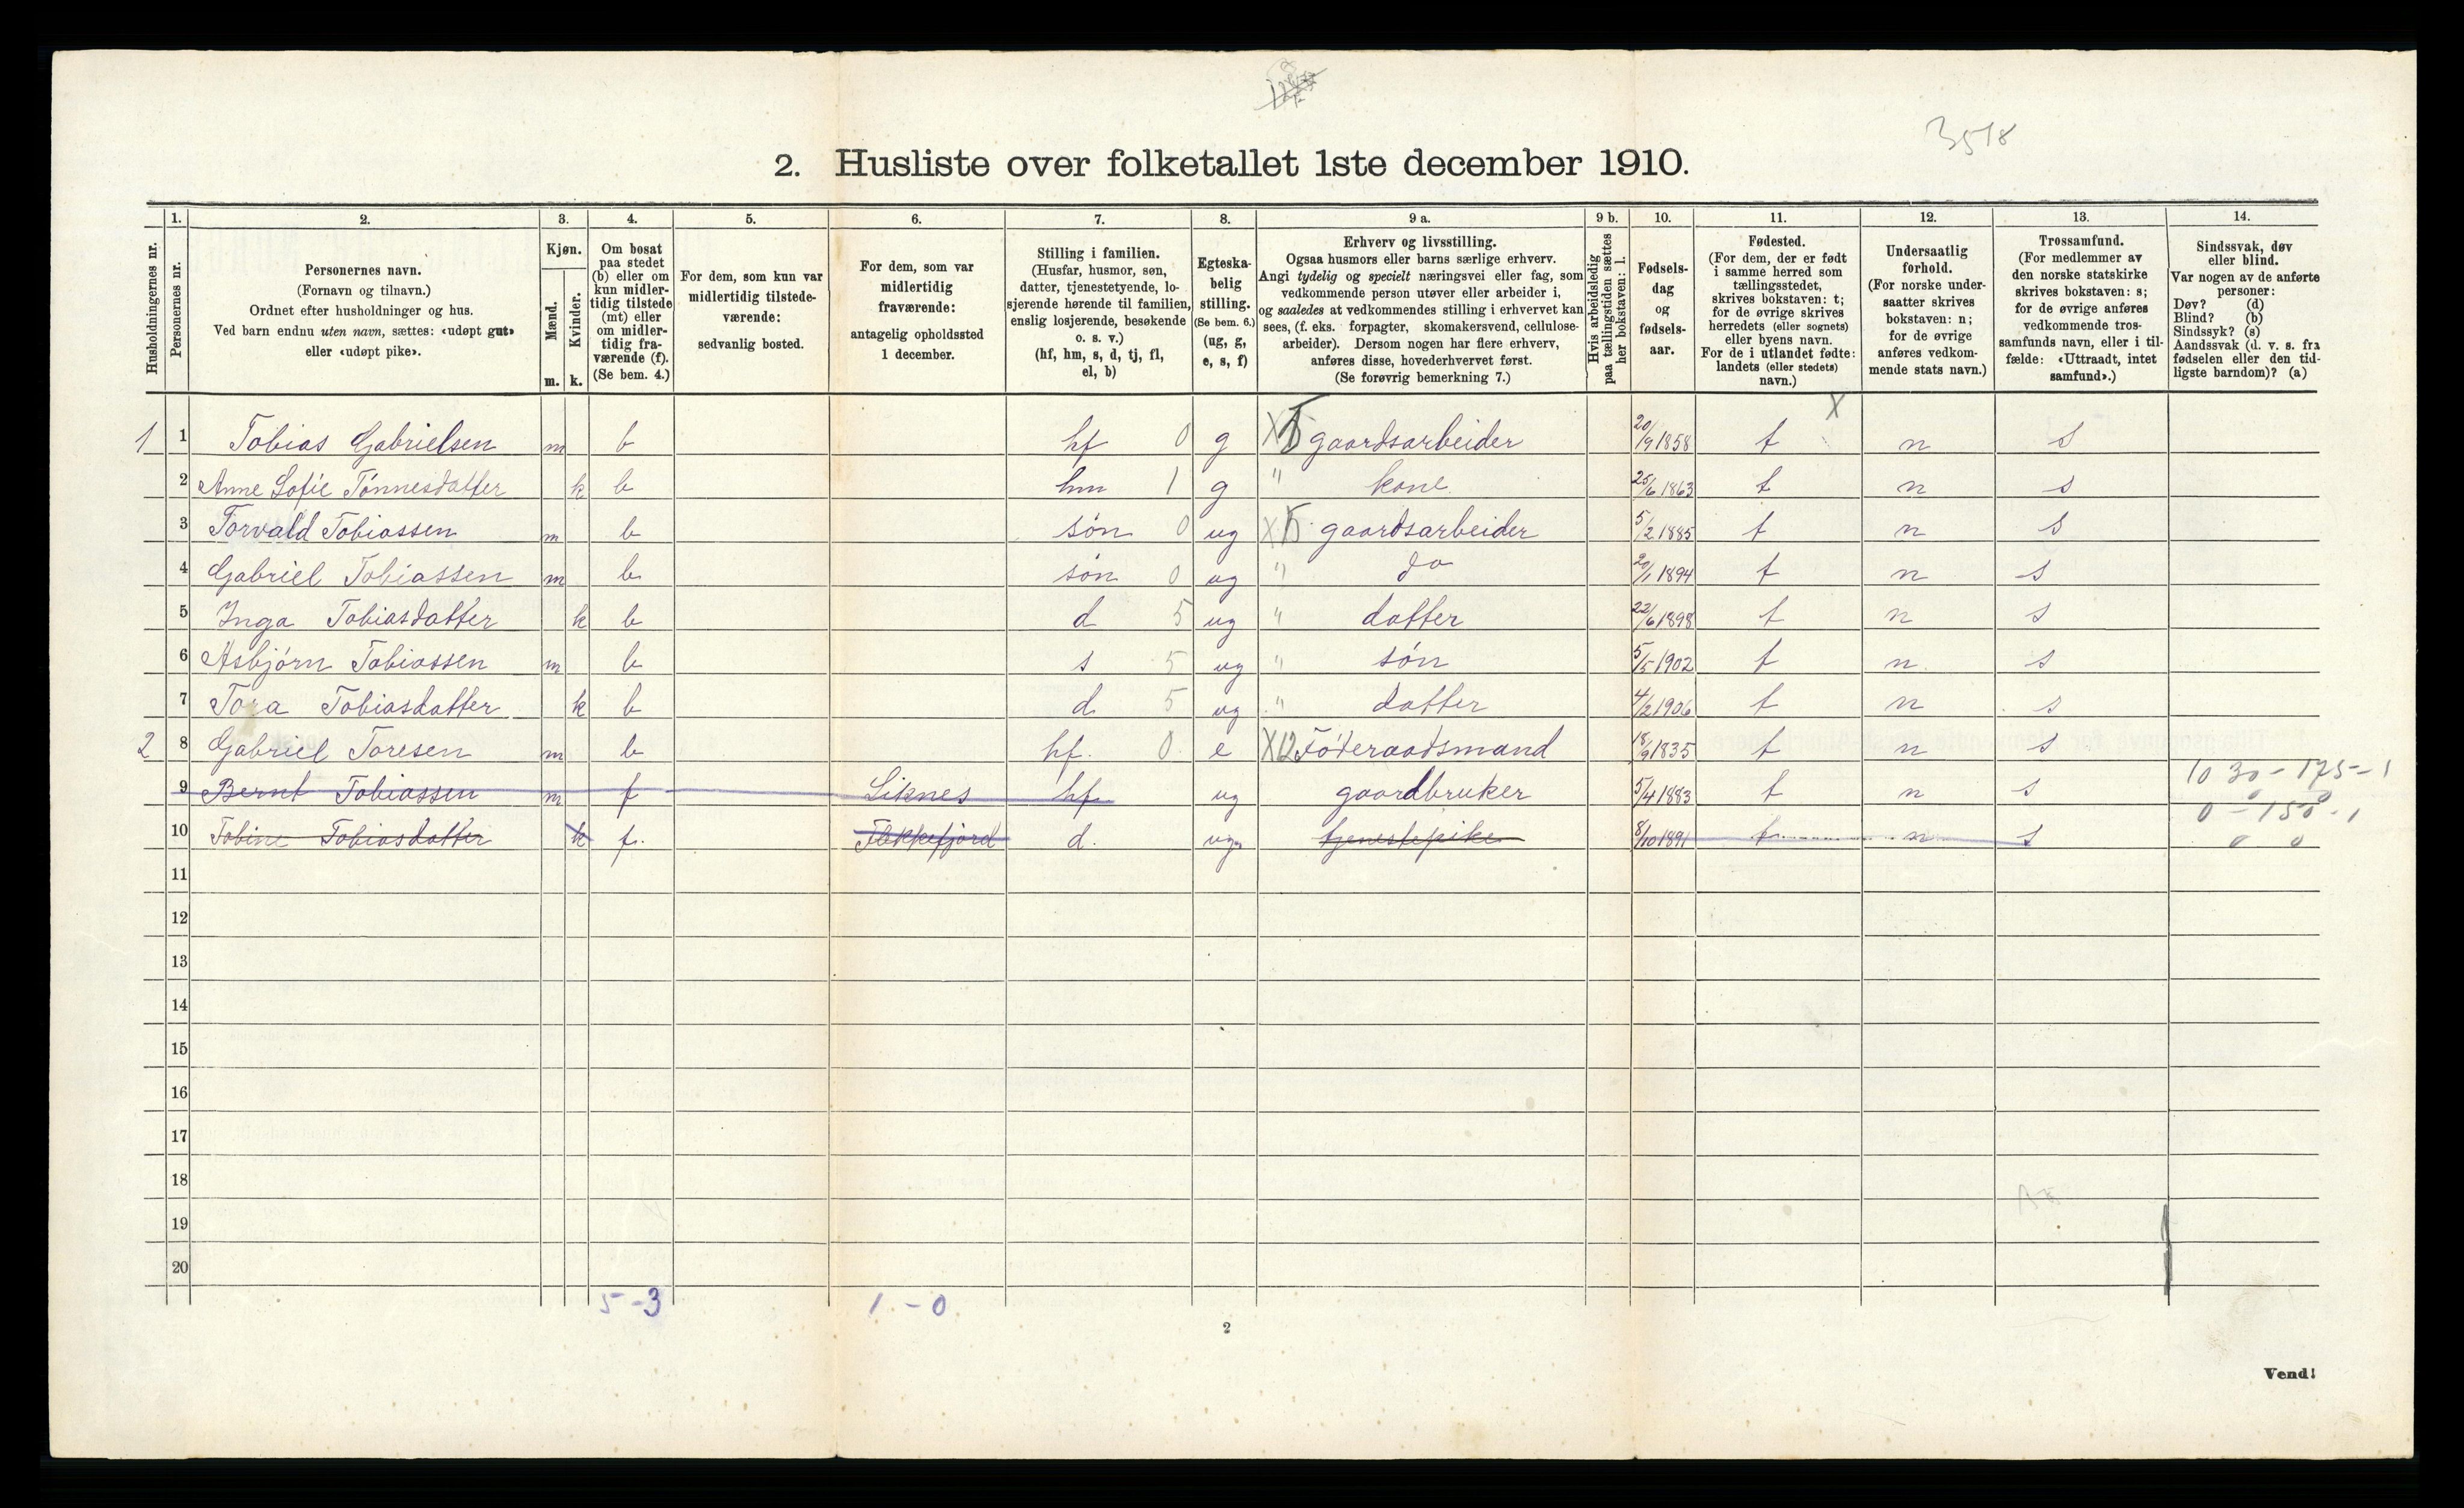 3518
2. Husliste over folketallet 1ste december 1910.
Husholdningernes nr.
1. Personernes nr.
2. Personernes navn. (Fornavn og tilnavn.) Ordnet efter husholdninger og hus. Ved barn endnu uten navn, sættes: «udøpt gut» eller «udøpt pike».
3. Kjøn. Mænd. m. Kvinder. k.
4. Om bosat paa stedet (b) eller om kun midlertidig tilstede (mt) eller om midlertidig fraværende (f). (Se bem. 4.)
5. For dem, som kun var midlertidig tilstedeværende: sedvanlig bosted.
6. For dem, som var midlertidig fraværende: antagelig opholdssted 1 december.
7. Stilling i familien. (Husfar, husmor, søn, datter, tjenestetyende, losjerende hørende til familien, enslig losjerende, besøkende o. s. v.) (hf, hm, s, d, tj, fl, el, b)
8. Egteskabelig stilling. (Se bem. 6.) (ug, g, e, s, f)
9 a. Erhverv og livsstilling. Ogsaa husmors eller barns særlige erhverv. Angi tydelig og specielt næringsvei eller fag, som vedkommende person utøver eller arbeider i, og saaledes at vedkommendes stilling i erhvervet kan sees, (f. eks. forpagter, skomakersvend, cellulosearbeider). Dersom nogen har flere erhverv, anføres disse, hovederhvervet først. (Se forøvrig bemerkning 7.)
9 b. Hvis arbeidsledig paa tællingstiden sættes her bokstaven: l.
10. Fødselsdag og fødselsaar.
11. Fødested. (For dem, der er født i samme herred som tællingsstedet, skrives bokstaven: t; for de øvrige skrives herredets (eller sognets) eller byens navn. For de i utlandet fødte: landets (eller stedets) navn.)
12. Undersaatlig forhold. (For norske undersaatter skrives bokstaven: n; for de øvrige anføres vedkommende stats navn.)
13. Trossamfund. (For medlemmer av den norske statskirke skrives bokstaven: s; for de øvrige anføres vedkommende trossamfunds navn, eller i tilfælde: «Uttraadt, intet samfund».)
14. Sindssvak, døv eller blind. Var nogen av de anførte personer: Døv? (d) Blind? (b) Sindssyk? (s) Aandssvak (d. v. s. fra fødselen eller den tidligste barndom)? (a)
X
1 1 Tobias Gabrielsen m b hf 0 g X gaardsarbeider 20/9 1858 t n s
2 Anne Sofie Tønnesdatter k b hm 1 g " kone 25/6 1863 t n s
3 Torvald Tobiassen m b søn 0 ug X gaardsarbeider 5/2 1885 t n s
4 Gabriel Tobiassen m b søn 0 ug " do 20/1 1894 t n s
5 Inga Tobiasdatter k b d 5 ug " datter 22/6 1898 t n s
6 Asbjørn Tobiassen m b s 5 ug " søn 5/5 1902 t n s
7 Tora Tobiasdatter k b d 5 ug " datter 4/2 1906 t n s
2 8 Gabriel Toresen m b hf. 0 e X12 Føderaadsmand 18/9 1835 t n s
9 Bernt Tobiassen m f Liknes hf ug gaardbruker 5/4 1883 t n s 10 30 - 175 - 1
0 0
10 Tobine Tobiasdatter k f. Flekkefjord d. ug. tjenestepike 8/10 1891 t n s 0 - 150 - 1
0 0
11
12
13
14
15
16
17
18
19
20
5 - 3 1 - 0
2
Vend!